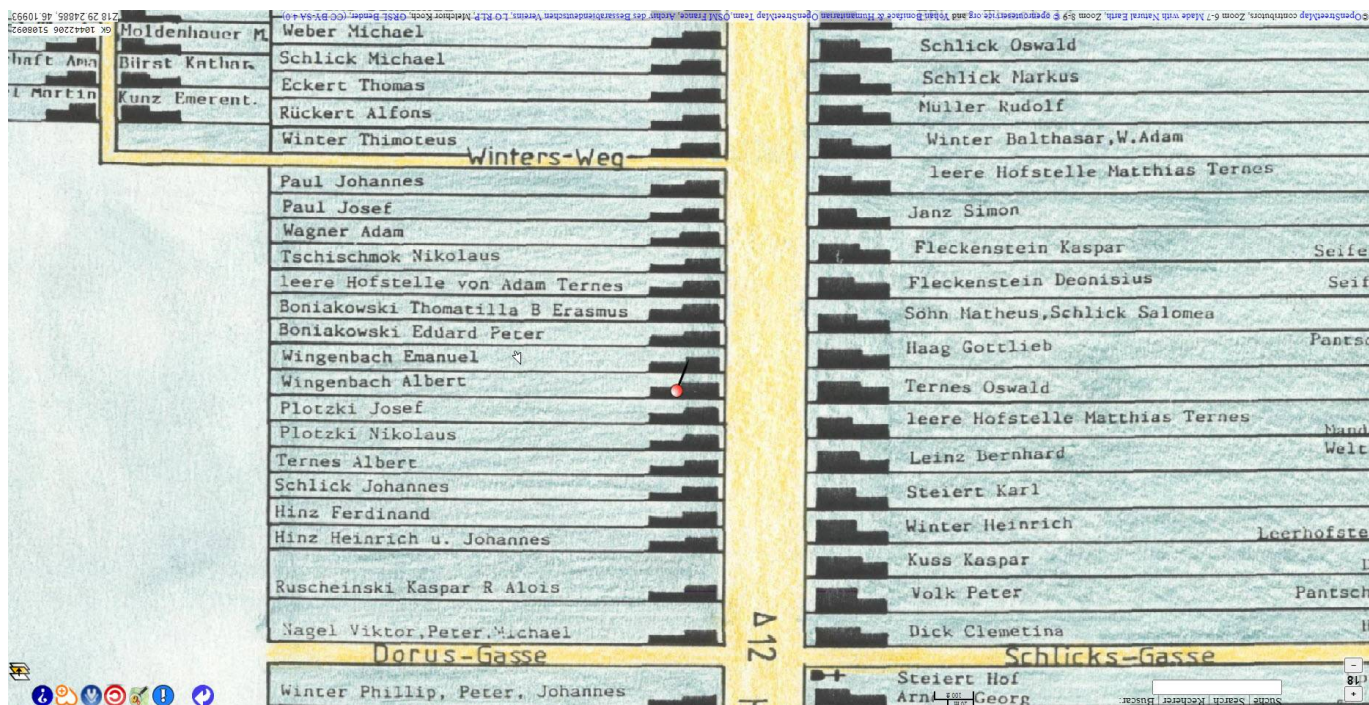 OpenStreetMap contributors, Zoom 6-7 Made with Natural Earth, Zoom 8-9 © openrouteservice.org and Yohan Boniface & Humanitarian OpenStreetMap Team, OSM France, Archiv des Bessarabiendeutschen Vereins, LO RLP Melchior Koch, GRSL Bender, (CC BY-SA 4.0)
Z18 29.74885, 46.10993
GK 10442206 5108092
Moldenhauer M
haft Ama
Bilrst Kathar.
l Martin
Kunz Emerent.
Weber Michael
Schlick Michael
Eckert Thomas
Rückert Alfons
Winter Thimoteus
Winters-Weg
Paul Johannes
Paul Josef
Wagner Adam
Tschischmok Nikolaus
leere Hofstelle von Adam Ternes
Boniakowski Thomatilla B Erasmus
Boniakowski Eduard Peter
Wingenbach Emanuel
Wingenbach Albert
Plotzki Josef
Plotzki Nikolaus
Ternes Albert
Schlick Johannes
Hinz Ferdinand
Hinz Heinrich u. Johannes
Ruscheinski Kaspar R Alois
Nagel Viktor,Peter,Michael
Dorus-Gasse
Winter Phillip, Peter, Johannes
A 12
Schlick Oswald
Schlick Markus
Müller Rudolf
Winter Balthasar,W.Adam
leere Hofstelle Matthias Ternes
Janz Simon
Fleckenstein Kaspar
Seife
Fleckenstein Deonisius
Seif
Sohn Matheus,Schlick Salomea
Haag Gottlieb
Pantsc
Ternes Oswald
leere Hofstelle Matthias Ternes
Mand
Leinz Bernhard
Welt
Steiert Karl
Winter Heinrich
Leerhofste
Kuss Kaspar
Volk Peter
Pantsch
Dick Clemetina
Schlicks-Gasse
Steiert Hof
Georg
Suche Search Recherer Buscar:
18